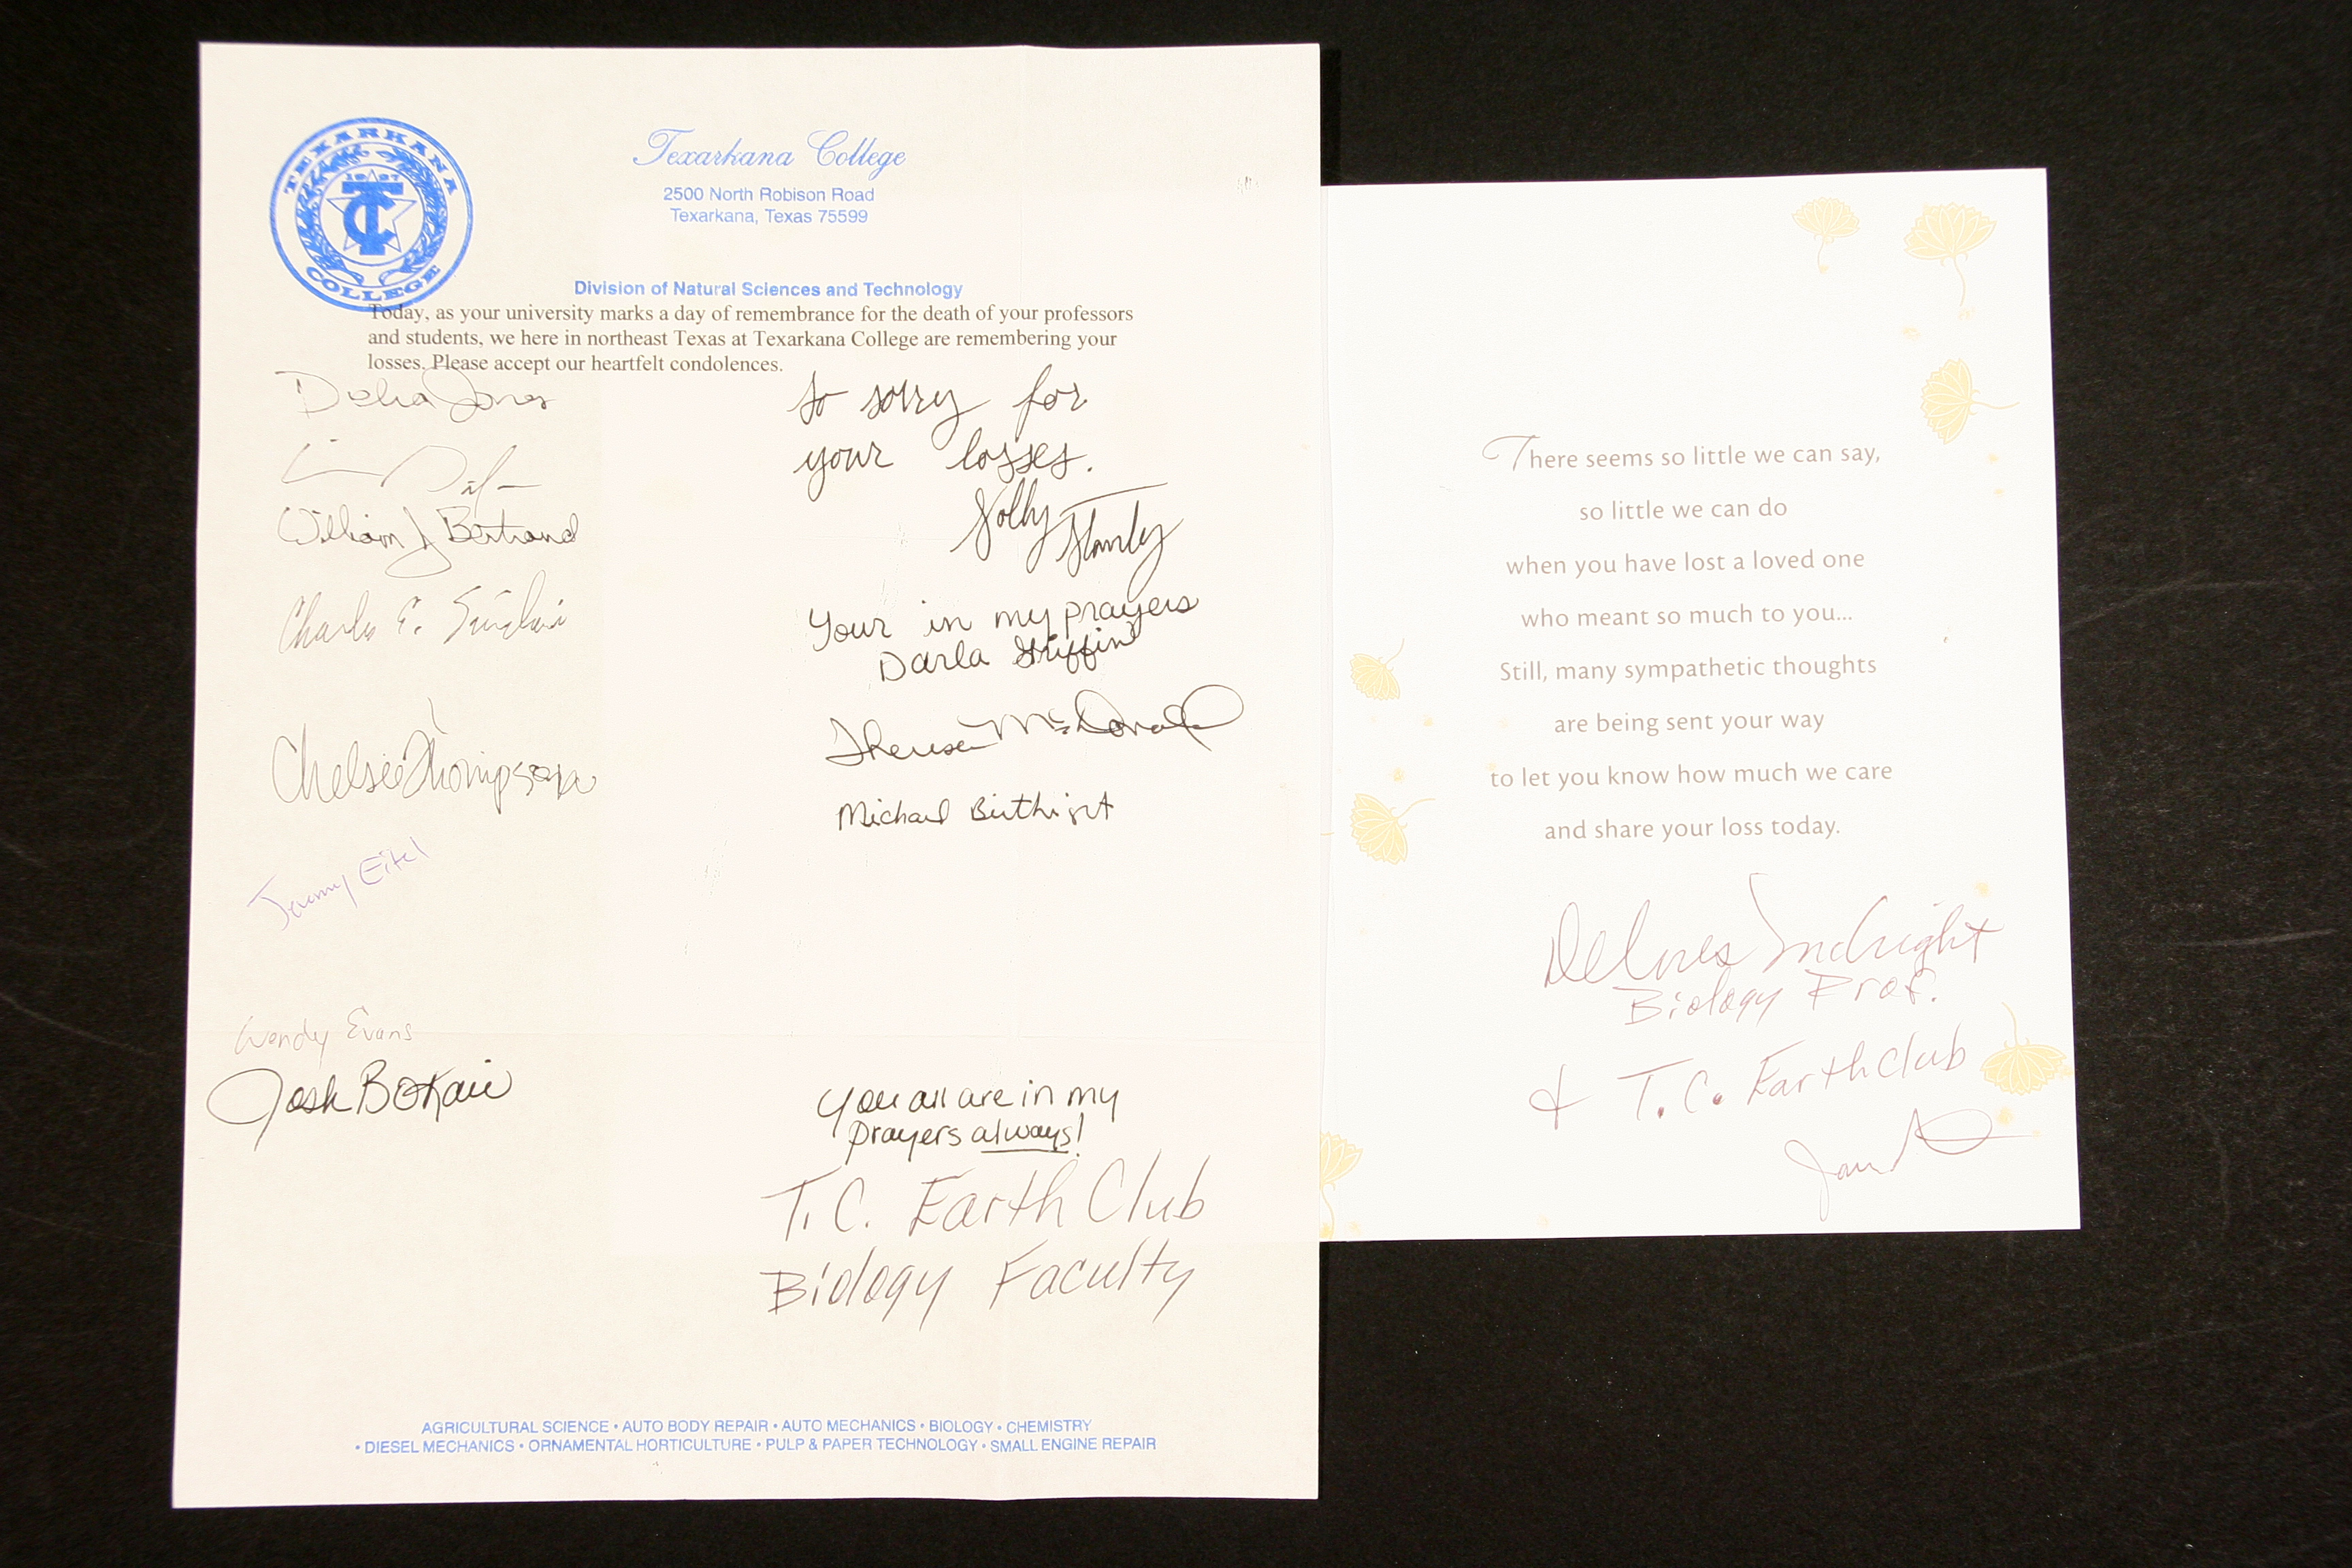 TEXARKANA
1927
TC
COLLEGE
Texarkana College
2500 North Robison Road
Texarkana, Texas 75599
Division of Natural Sciences and Technology
Today, as your university marks a day of remembrance for the death of your professors
and students, we here in northeast Texas at Texarkana College are remembering your
losses. Please accept our heartfelt condolences.
Delia Jones
William J Bertrand
Charles E. Sinclair
Chelsie Thompson
Eitel
Wendy Evans
Josh
So sorry for
your losses.
Your in my prayers
Darla Griffin
Theresa McDonald
Michael
You all are in my
prayers always!
T.C. Earth Club
Biology Faculty
AGRICULTURAL SCIENCE • AUTO BODY REPAIR • AUTO MECHANICS • BIOLOGY • CHEMISTRY
• DIESEL MECHANICS • ORNAMENTAL HORTICULTURE • PULP & PAPER TECHNOLOGY • SMALL ENGINE REPAIR
There seems so little we can say,
so little we can do
when you have lost a loved one
who meant so much to you...
Still, many sympathetic thoughts
are being sent your way
to let you know how much we care
and share your loss today.
Delores
Biology Prof.
& T.C. Earth Club